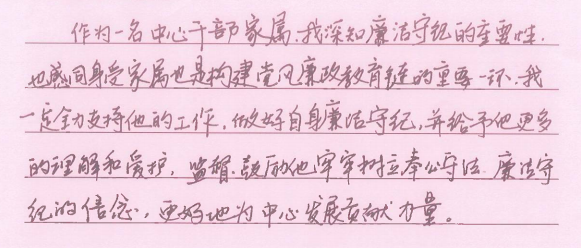 作为一名中心干部家属,我深知廉洁守纪的重要性.
也感同身受家属也是构建党风廉政教育链的重要一环.我
一定全力支持他的工作,做好自身廉洁守纪,并给予他更多
的理解和爱护,监督、鼓励他牢牢树立奉公守法、廉洁守
纪的信念,更好地为中心发展贡献力量。